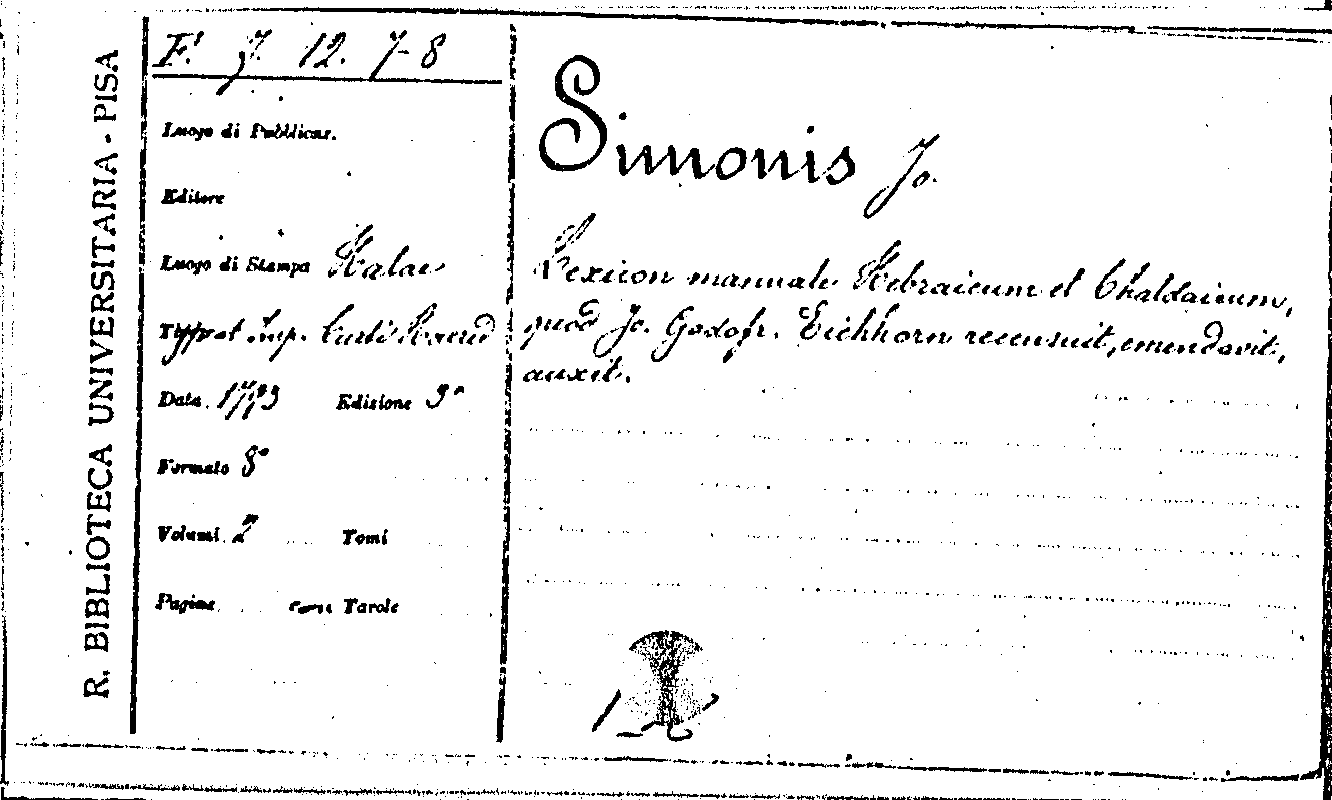 R. BIBLIOTECA UNIVERSITARIA - PISA
F. J. 12. 7-8
Luogo di Pubblicaz.
Editore
Luogo di Stampa Halae
Typ. et Imp. Curti Haered
Data 1793 Edizione 3ª
Formato 8°
Volumi 2 Tomi
Pagine con Tavole
Simonis Jo.
Lexicon manuale Hebraicum et Chaldaicum,
quod Jo. Godofr. Eichhorn recensuit, emendavit,
auxit.